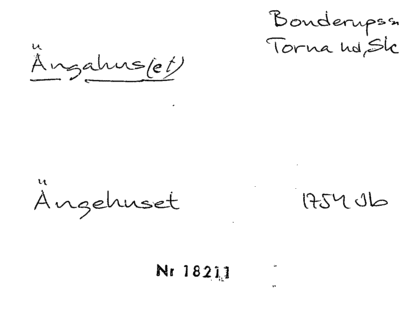 Bonderups sn
Ängahus(et)
Torna hd, Sk
Ängehuset
1754 Jb
Nr 18211